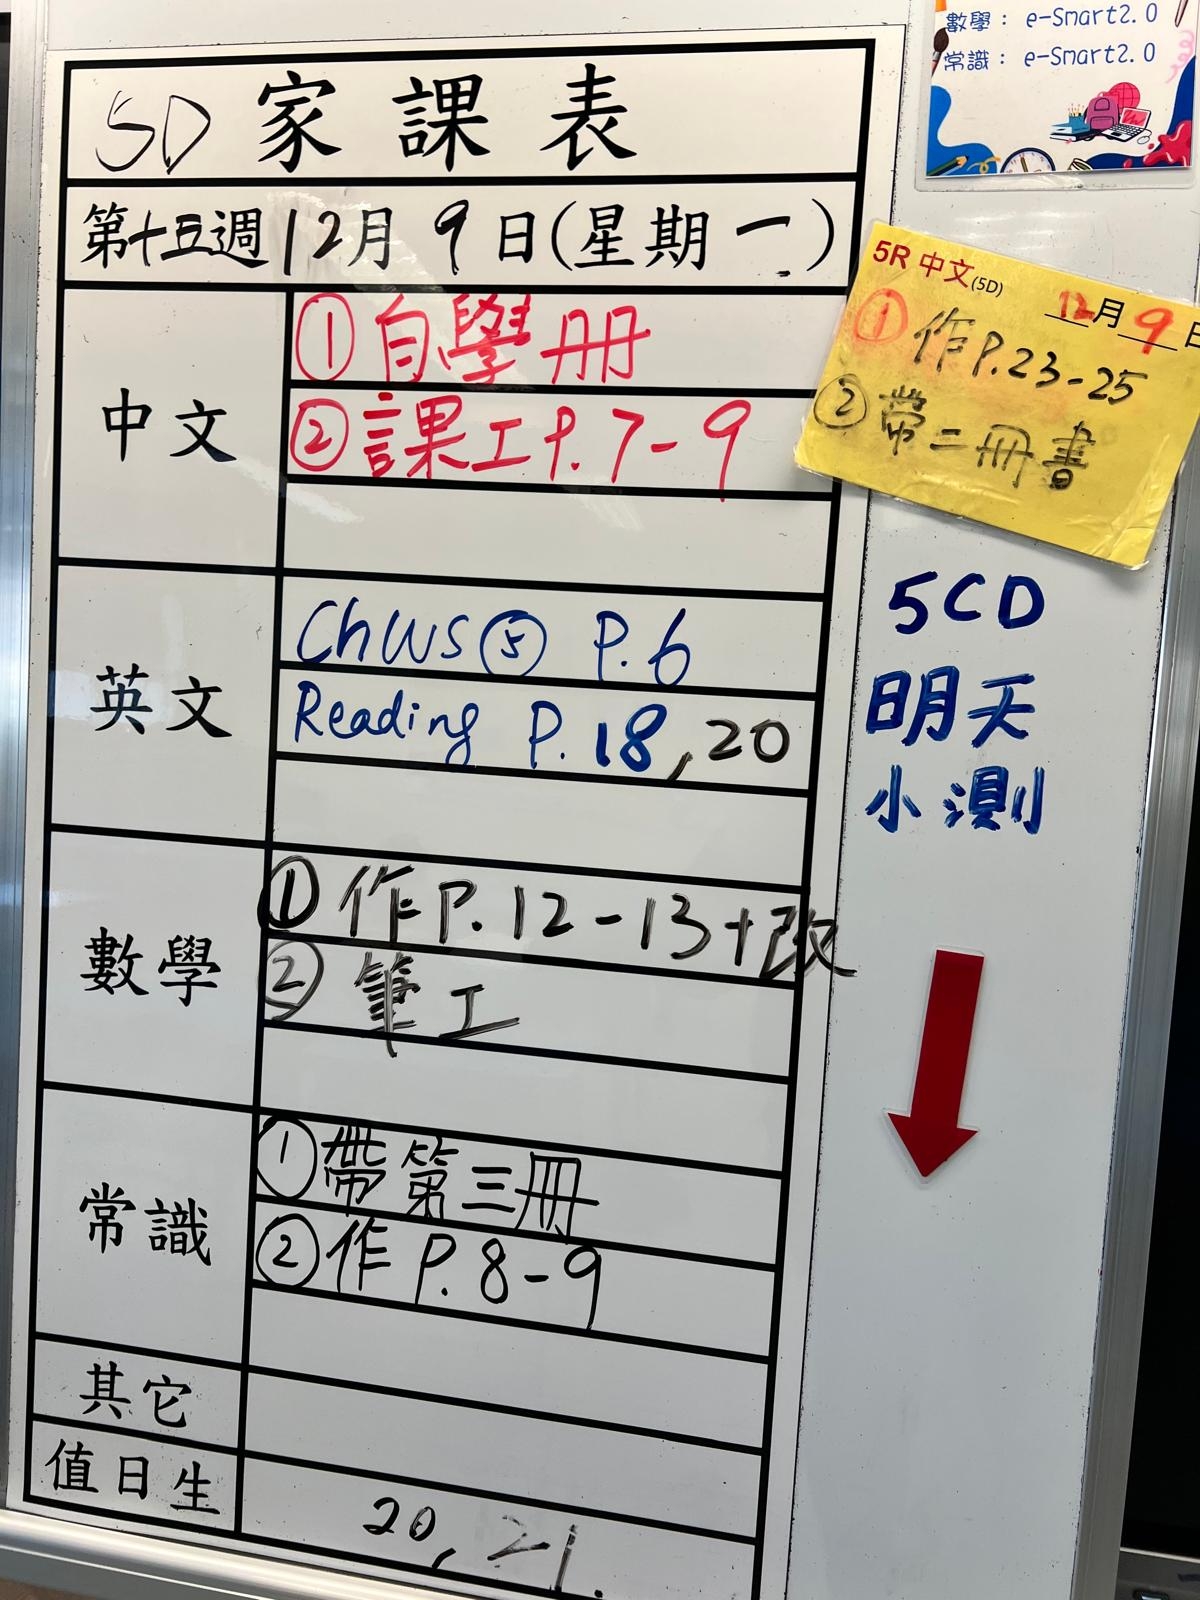 數學： e-Smart2.0
常識： e-Smart2.0
5D 家課表
第十五週 12月 9日(星期一)
中文
① 自學冊
② 課工 P.7-9
5R 中文(5D)
12月9日
① 作P.23-25
② 帶二冊書
英文
ChWS⑤ P.6
Reading P.18,20
5CD
明天
小測
數學
① 作P.12-13+改
② 筆工
常識
① 帶第三冊
② 作 P.8-9
其它
值日生
20, 21.